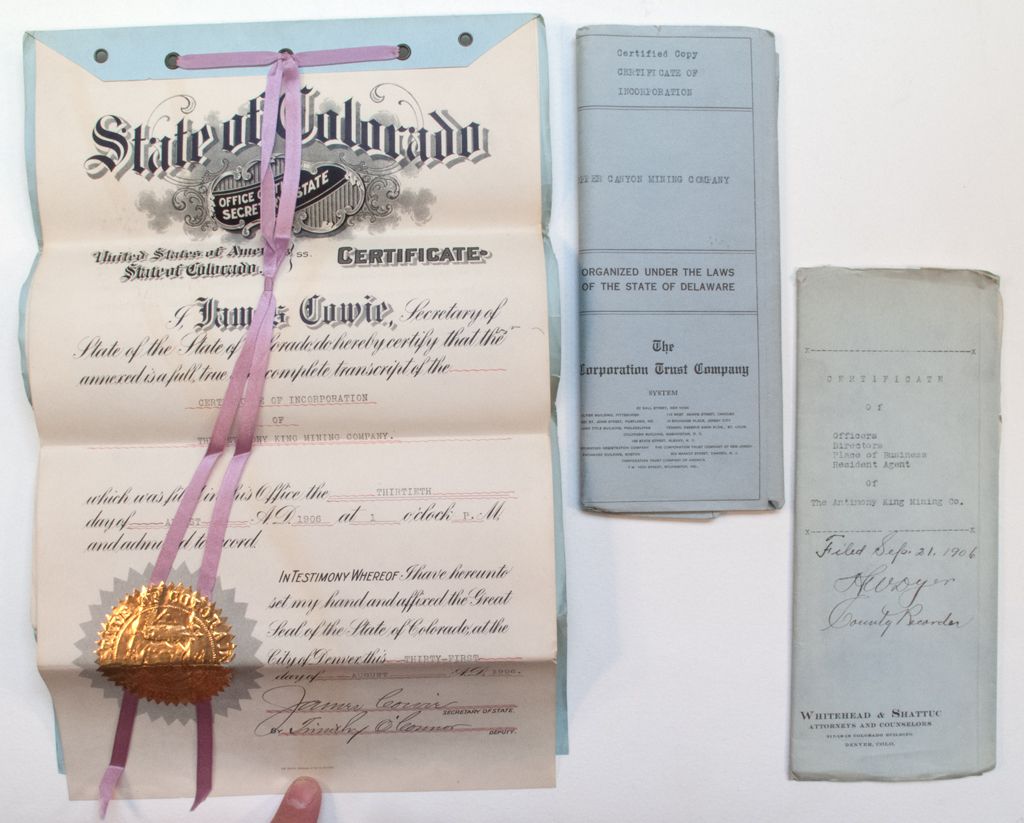 State of Colorado
OFFICE OF STATE
SECRE
United States of Ameri ss. CERTIFICATE.
State of Colorado
I, James Cowie, Secretary of
State of the State of Colorado, do hereby certify that the
annexed is a full, true complete transcript of the
CERT E OF INCORPORATION
OF
TH MONY KING MINING COMPANY.
which was filed in this Office the THIRTIETH
day of AUGUST A.D. 1906 at 1 o'clock P. M.
and admitted to record.
IN TESTIMONY WHEREOF I have hereunto
set my hand and affixed the Great
Seal of the State of Colorado, at the
City of Denver, this THIRTY-FIRST
day of AUGUST A.D. 1906.
James Cowie
SECRETARY OF STATE.
BY Timothy O'Connor
DEPUTY.
STATE OF COLORADO
Certified Copy
CERTIFICATE OF
INCORPORATION
PPER CANYON MINING COMPANY
ORGANIZED UNDER THE LAWS
OF THE STATE OF DELAWARE
The
Corporation Trust Company
SYSTEM
CERTIFICATE
Of
Officers
Directors
Place of Business
Resident Agent
Of
The Antimony King Mining Co.
Filed Sep. 21, 1906
Dyer
County Recorder
WHITEHEAD & SHATTUC
ATTORNEYS AND COUNSELORS
COLORADO BUILDING
DENVER, COLO.